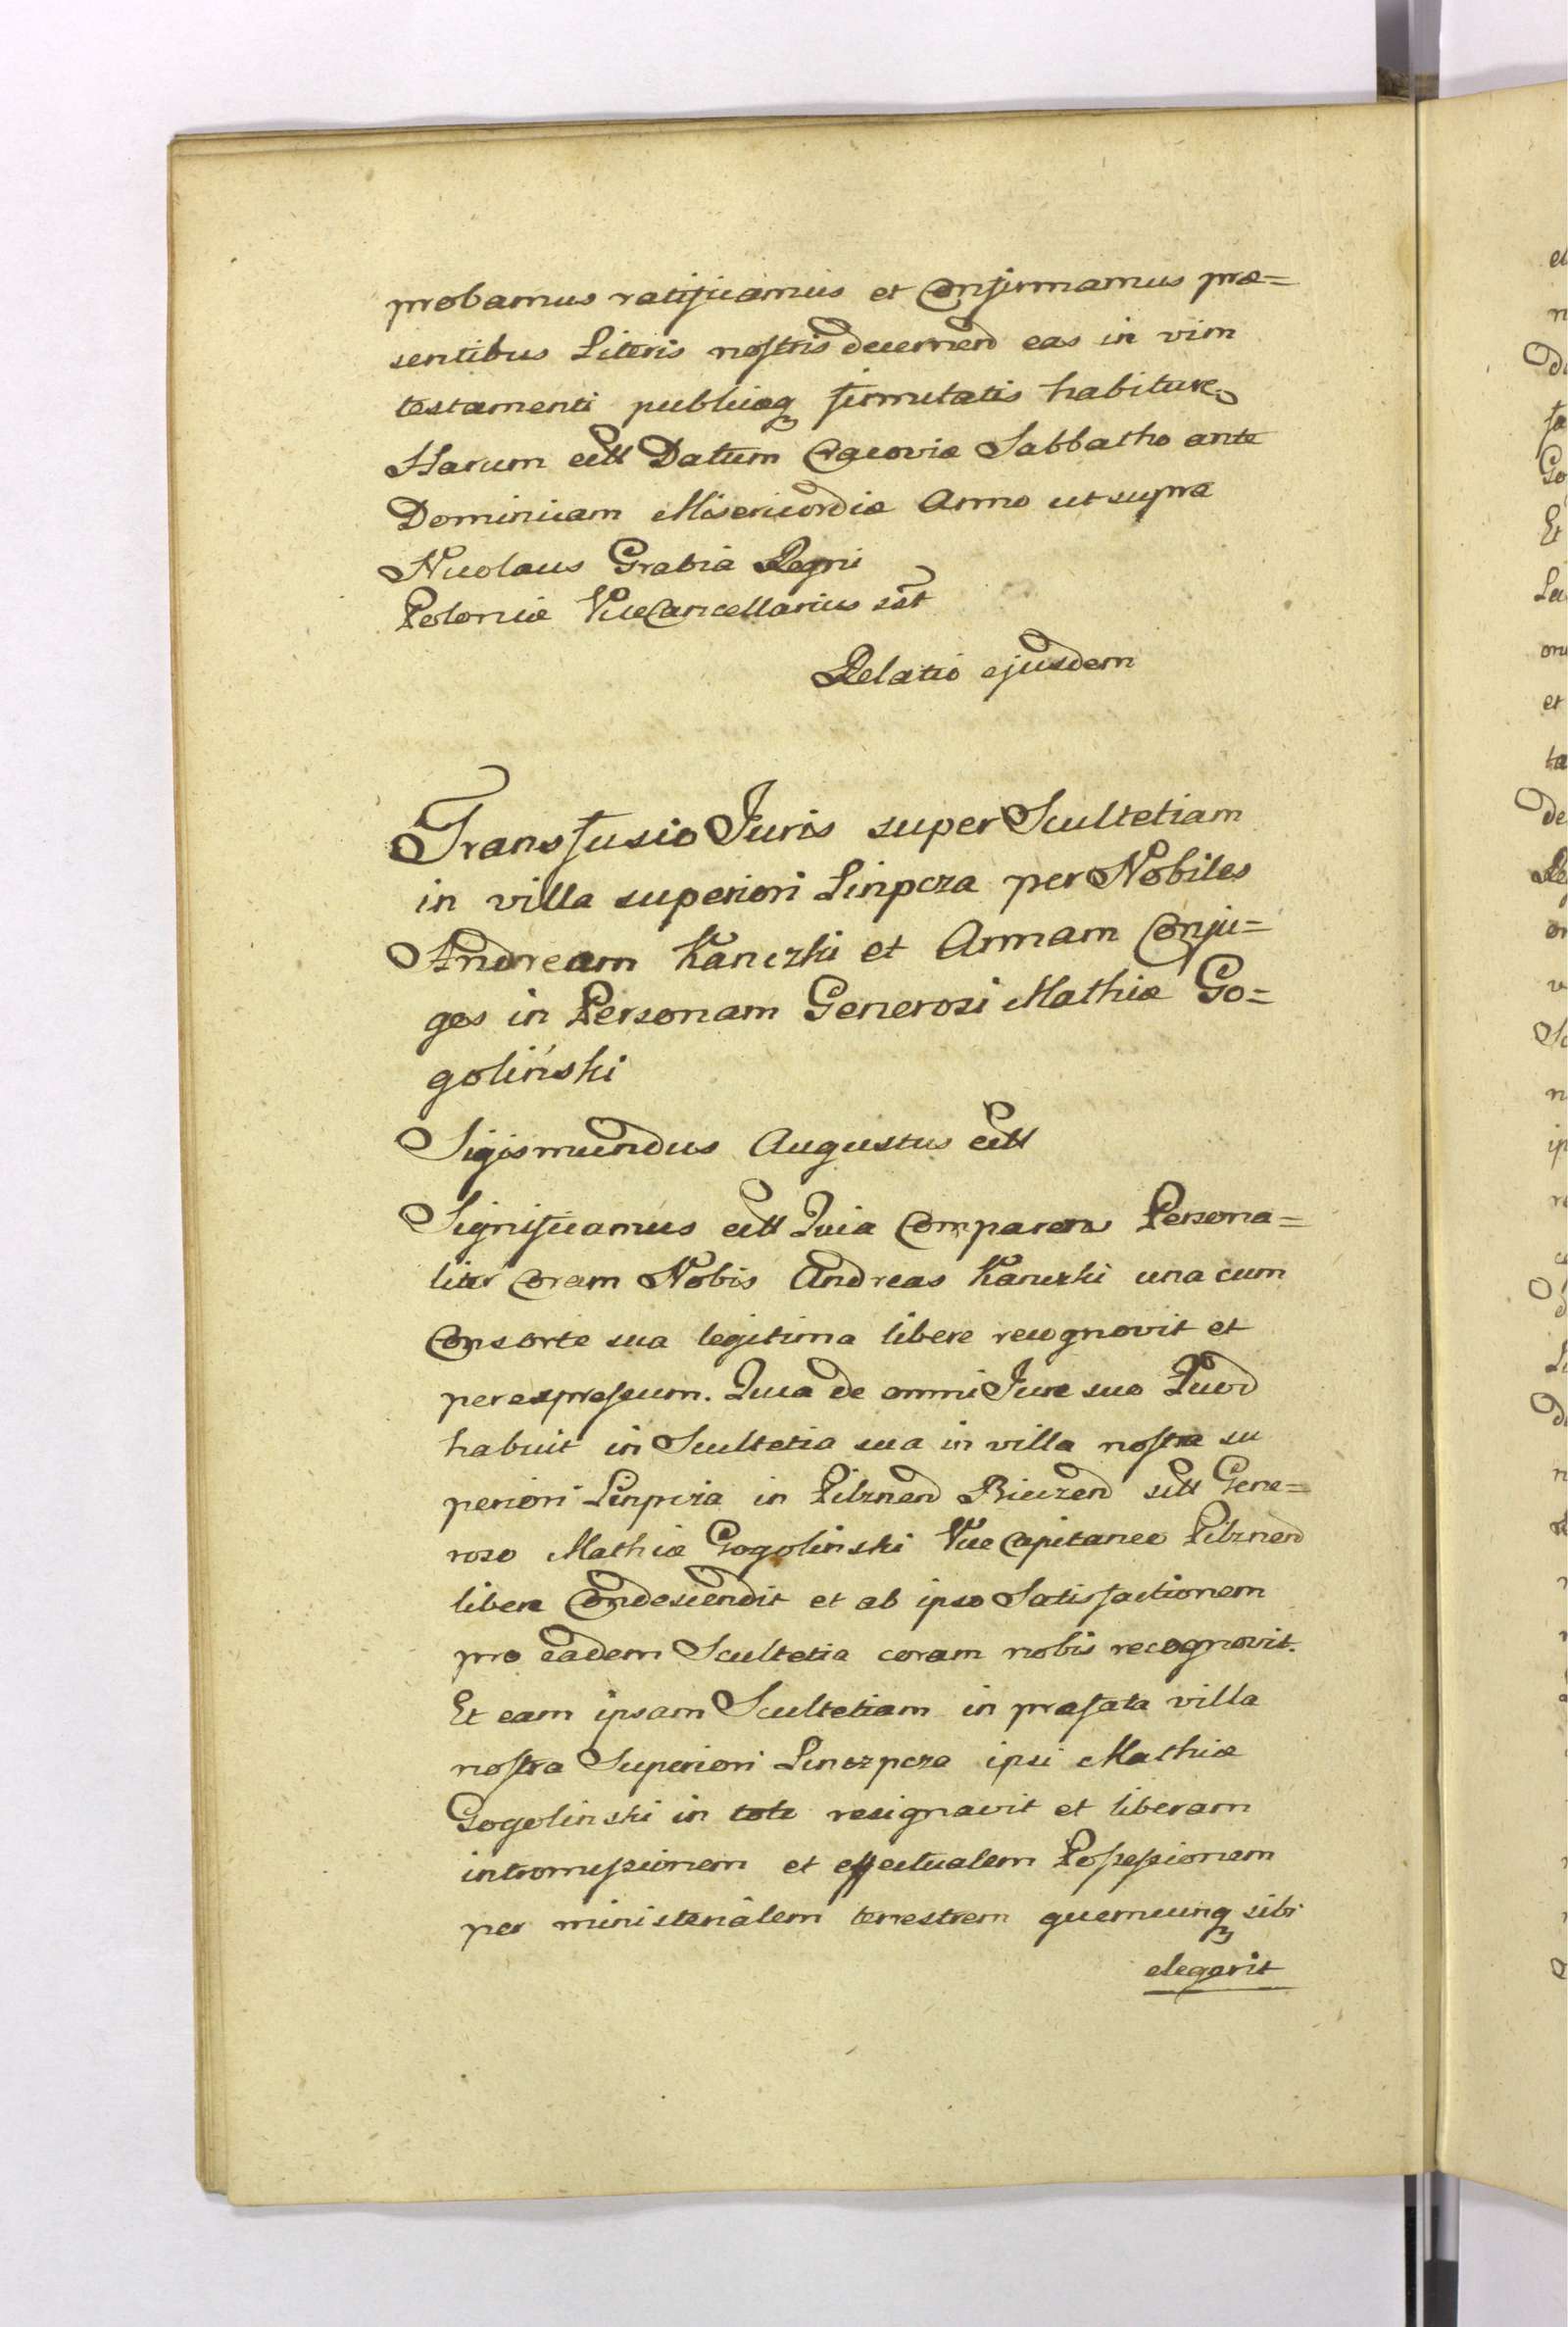 probamus ratificamus et Confirmamus præ=
sentibus Literis nostris decernend eas in vim
testamenti publicaq firmitatis habiture
Harum ett Datum Cracoviæ Sabbatho ante
Dominicam Misericordiæ Anno ut supra
Nicolaus Grabia Regni
Poloniæ ViceCancellarius sst
Relatio ejusdem
Transfusio Juris super Scultetiam
in villa superiori Linpcza per Nobiles
Andream Kanczki et Annam Conju=
ges in Personam Generosi Mathiæ Go=
goliński
Sigismundus Augustus ett
Significamus ett Quia Comparens Persona=
liter Coram Nobis Andreas Kanczki una cum
Consorte sua legitima libere recognovit et
per expressum. Quia de omni Jure suo Quod
habuit in Scultetia sua in villa nostra su
periori Linpcza in Pilznend Bieczend sitt Gene=
roso Mathiæ Gogolinski Vice Capitaneo Pilznend
libere Condescendit et ab ipso Satisfactionem
pro eadem Scultetia coram nobis recognovit.
Et eam ipsam Scultetiam in prafata villa
nostra Superiori Linczpcza ipsi Mathiæ
Gogolinski in toto resignavit et liberam
intromissionem et effectualem Possessionem
per ministerialem terrestrem quemcunq sibi
elegerit